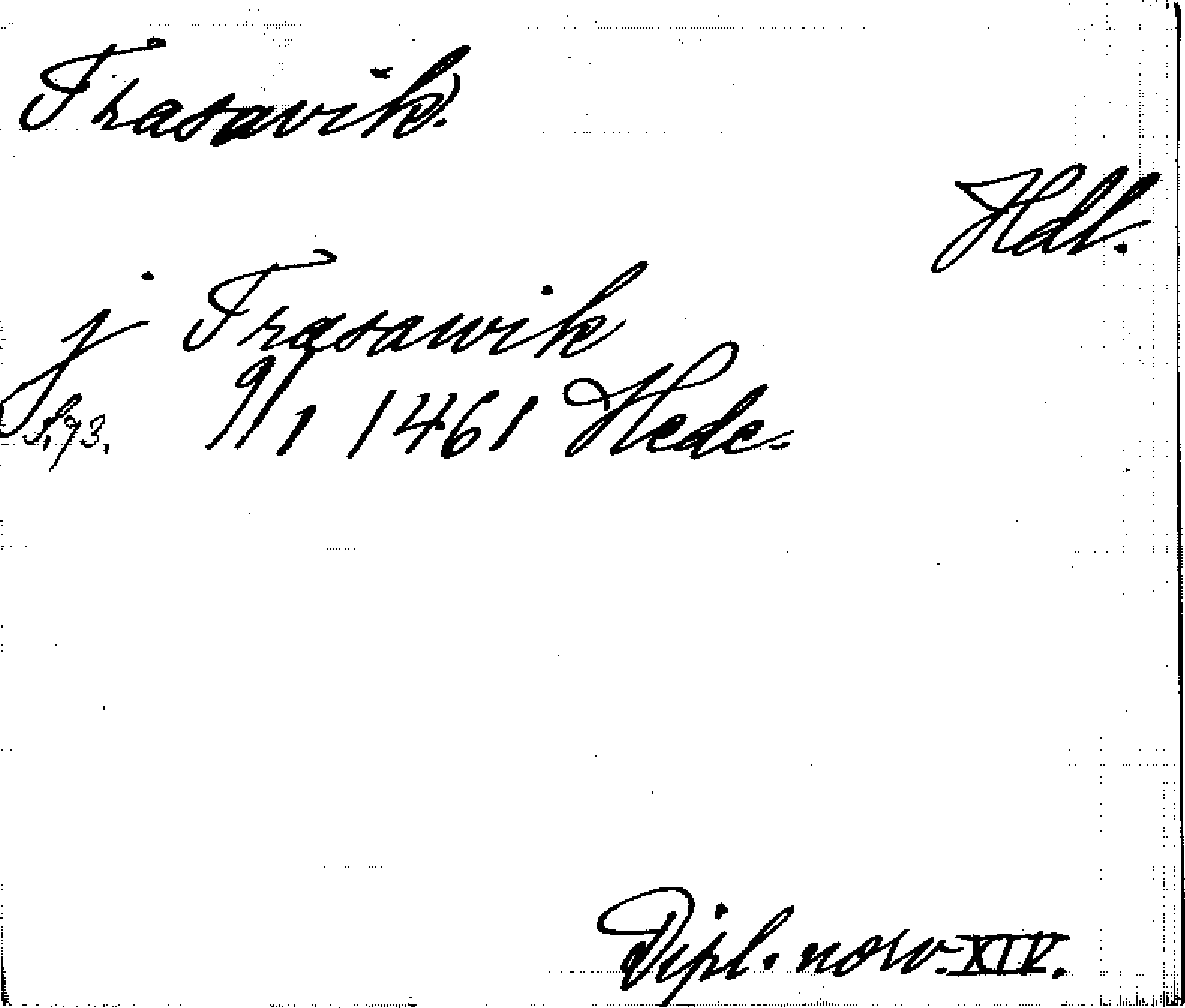 Trasavik.
Hdl.
j Trasawik
S. 73. 9/1 1461 Hede.
Dipl. norv. XIV.